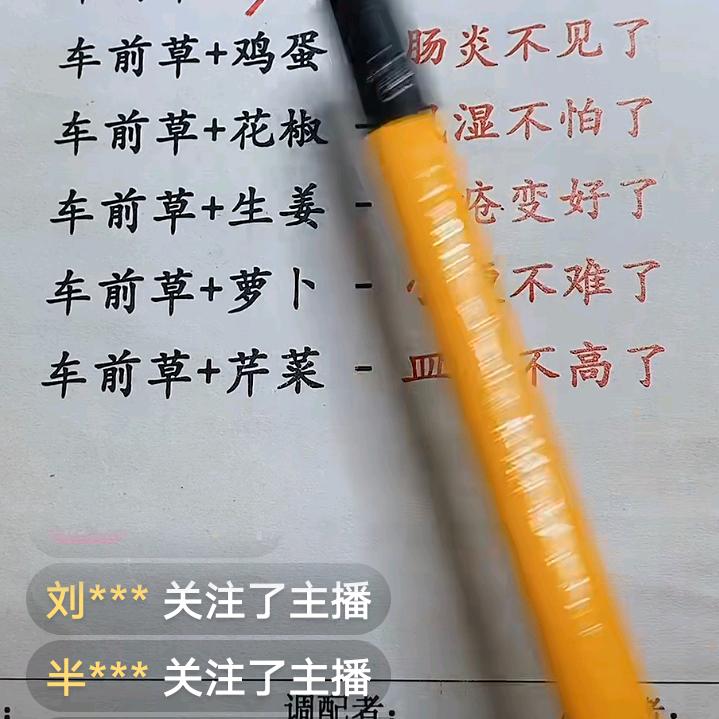 车前草+鸡蛋 肠炎不见了
车前草+花椒 - 湿不怕了
车前草+生姜 - 疮变好了
车前草+萝卜 - 不难了
车前草+芹菜 - 皿 不高了
刘*** 关注了主播
半*** 关注了主播
调配者: